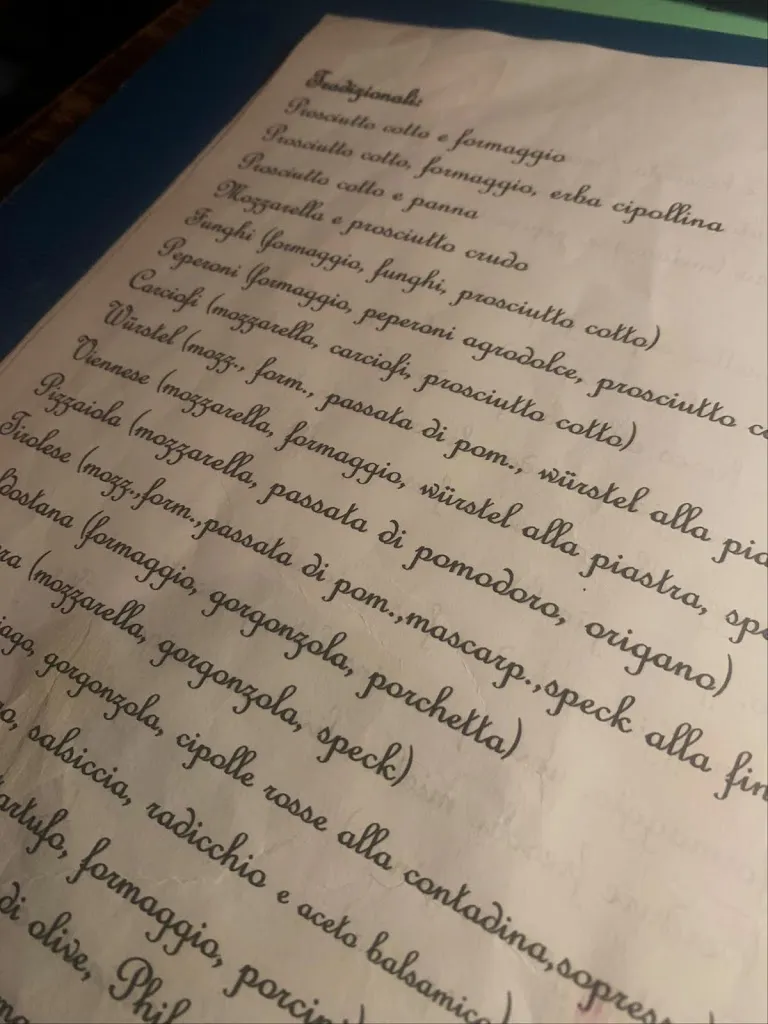 Tradizionali:
Prosciutto cotto e formaggio
Prosciutto cotto, formaggio, erba cipollina
Prosciutto cotto e panna
Mozzarella e prosciutto crudo
Funghi (formaggio, funghi, prosciutto cotto)
Peperoni (formaggio, peperoni agrodolce, prosciutto co
Carciofi (mozzarella, carciofi, prosciutto cotto)
Würstel (mozz., form., passata di pom., würstel alla pia
Viennese (mozzarella, formaggio, würstel alla piastra, spe
Pizzaiola (mozzarella, passata di pomodoro, origano)
Tirolese (mozz.,form.,passata di pom.,mascarp.,speck alla fin
ldostana (formaggio, gorgonzola, porchetta)
ra (mozzarella, gorgonzola, speck)
iago, gorgonzola, cipolle rosse alla contadina,sopress
o, salsiccia, radicchio e aceto balsamico)
artufo, formaggio, porcini)
di olive, Phil